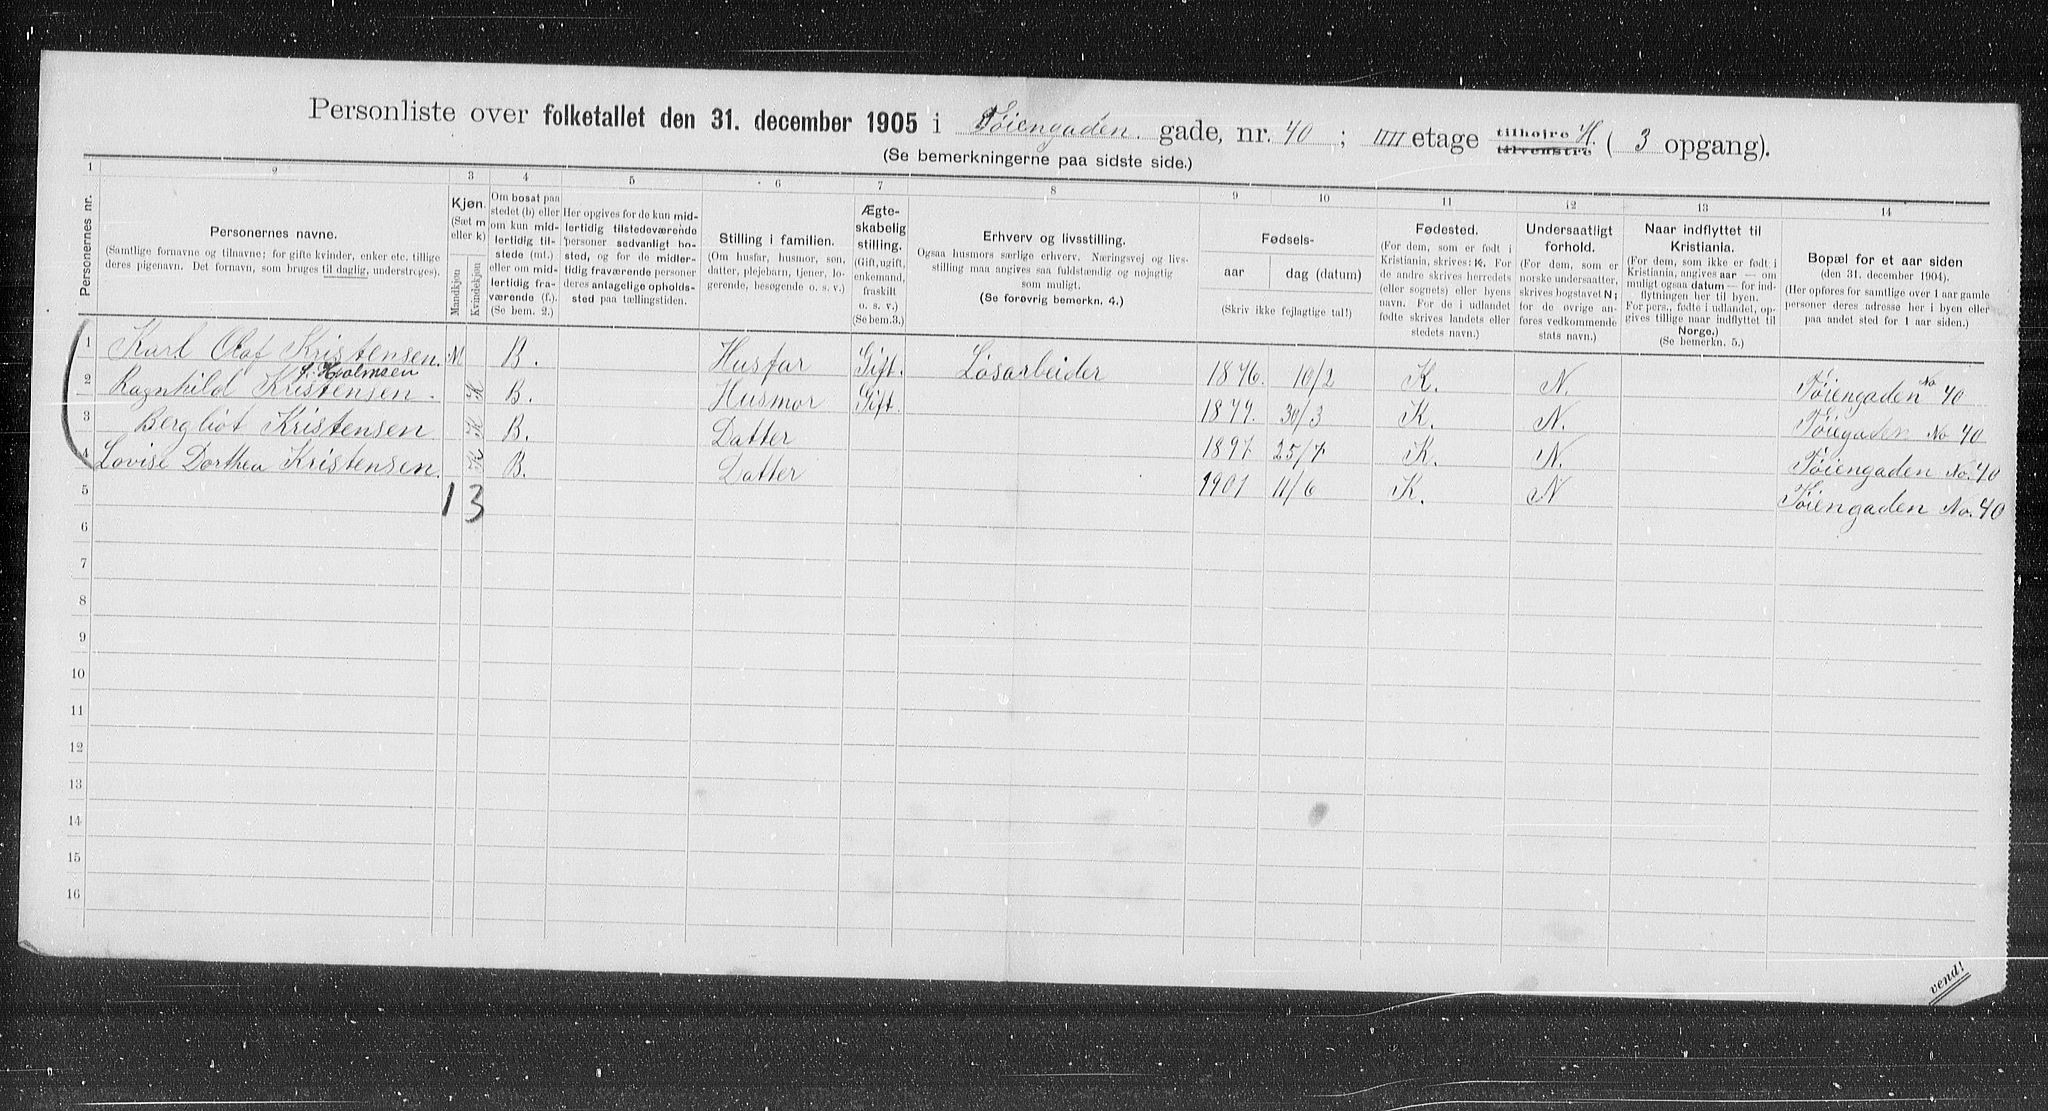 Personliste over folketallet den 31. december 1905 i Tøiengaden gade, nr. 40 ; IIII etage tilhøjre tilvenstre H. ( 3 opgang).
(Se bemerkningerne paa sidste side.)
1 2 3 4 5 6 7 8 9 10 11 12 13 14
Personernes nr.
Personernes navne.
(Samtlige fornavne og tilnavne; for gifte kvinder, enker etc. tillige
deres pigenavn. Det fornavn, som bruges til daglig, understreges).
Kjøn.
(Sæt m
eller k)
Mandkjøn
Kvindekjøn
Om bosat paa
stedet (b) eller
om kun mid-
lertidig til-
stede (mt.)
eller om mid-
lertidig fra-
værende (f.).
(Se bem. 2.)
Her opgives for de kun mid-
lertidig tilstedeværende
personer sedvanligt bo-
sted, og for de midler-
tidig fraværende personer
deres antagelige opholds-
sted paa tællingstiden.
Stilling i familien.
(Om husfar, husmor, søn,
datter, plejebarn, tjener, lo-
gerende, besøgende o. s. v.)
Ægte-
skabelig
stilling.
(Gift, ugift,
enkemand,
fraskilt
o. s. v.)
(Se bem.3.)
Erhverv og livsstilling.
Ogsaa husmors særlige erhverv. Næringsvej og livs-
stilling maa angives saa fuldstændig og nøjagtig
som muligt.
(Se forøvrig bemerkn. 4.)
Fødsels-
aar dag (datum)
(Skriv ikke fejlagtige tal!)
Fødested.
(For dem, som er født i
Kristiania, skrives: K. For
de andre skrives herredets
(eller sognets) eller byens
navn. For de i udlandet
fødte skrives landets eller
stedets navn.)
Undersaatligt
forhold.
(For dem, som er
norske undersaatter,
skrives bogstavet N;
for de øvrige an-
føres vedkommende
stats navn.)
Naar indflyttet til
Kristiania.
(For dem, som ikke er født i
Kristiania, angives aar — om
muligt ogsaa datum — for ind-
flytningen her til byen.
For pers., født i udlandet, op-
gives tillige naar indflyttet til
Norge.)
(Se bemerkn. 5.)
Bopæl for et aar siden
(den 31. december 1904).
(Her opføres for samtlige over 1 aar gamle
personer deres adresse her i byen eller
paa andet sted for 1 aar siden.)
1 Karl Olaf Kristensen. M B. Husfar Gift. Løsarbeider 1876. 10/2 K. N. Tøiengaden No 40
f. Holmsen
2 Ragnhild Kristensen. K B. Husmor Gift. 1877. 30/3 K. N. Tøiegaden No 40
3 Bergliot Kristensen K B. Datter 1897 25/7 K. N. Tøiengaden No. 40
4 Lovise Dorthea Kristensen. K B. Datter 1901 11/6 K. N Tøiengaden No. 40
5 1 3
6
7
8
9
10
11
12
13
14
15
16
vend!